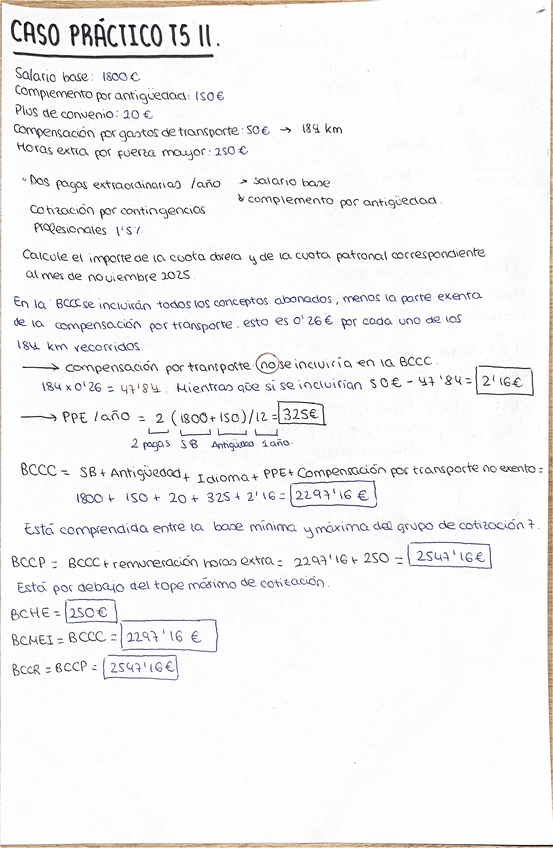 CASO PRÁCTICO T5 II.
Salario base: 1800 €
Complemento por antigüedad: 150 €
Plus de convenio: 20 €
Compensación por gastos de transporte: 50€ → 184 km
Horas extra por fuerza mayor: 250 €
• Dos pagas extraordinarias /año → salario base
↘ complemento por antigüedad.
Cotización por contingencias
profesionales 1'5%
Calcule el importe de la cuota obrera y de la cuota patronal correspondiente
al mes de noviembre 2025.
En la BCCC se incluirán todos los conceptos abonados, menos la parte exenta
de la compensación por transporte. esto es 0'26 € por cada uno de los
184 km recorridos.
→ compensación por transporte no se incluiría en la BCCC.
184 x 0'26 = 47'84. Mientras que sí se incluirían 50 € - 47'84 = 2'16 €
→ PPE /año = 2 (1800 + 150) /12 = 325€
2 pagas SB Antigüedad 1 año.
BCCC = SB + Antigüedad + Idioma + PPE + Compensación por transporte no exento =
1800 + 150 + 20 + 325 + 2'16 = 2297'16 €
Está comprendida entre la base mínima y máxima del grupo de cotización 7.
BCCP = BCCC + remuneración horas extra = 2297'16 + 250 = 2547'16 €
Está por debajo del tope máximo de cotización.
BCHE = 250 €
BCMEI = BCCC = 2297'16 €
BCCR = BCCP = 2547'16 €